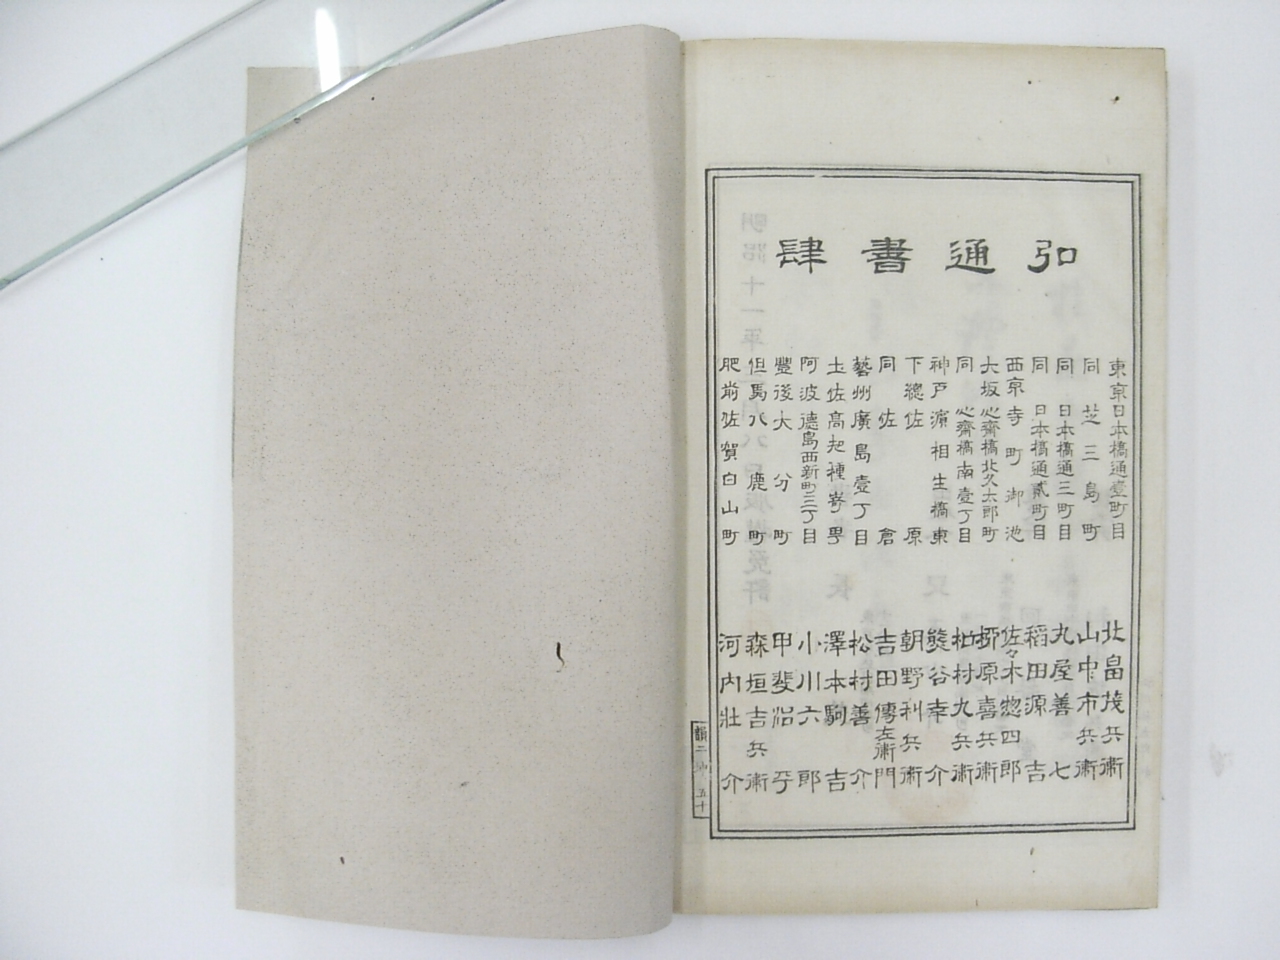 弘通書肆
東京日本橋通壹町目 北畠茂兵衛
同 芝三島町 山中市兵衛
同 日本橋通三町目 丸屋善七
同 日本橋通貳町目 稻田源吉
西京寺町御池 佐々木惣四郎
大坂心齋橋北久太郎町 柳原喜兵衛
同 心齋橋南壹丁目 松村九兵衛
神戸濱相生橋東 熊谷幸介
下總佐原 朝野利兵衛
同 佐倉 吉田傳左衛門
藝州廣島壹丁目 松村善介
土佐高知種㟢町 澤本駒吉
阿波德島西新町三丁目 小川六郎
豐後大分町 甲斐治平
但馬八鹿町 森垣吉兵衛
肥前佐賀白山町 河内壯介
明治十一年